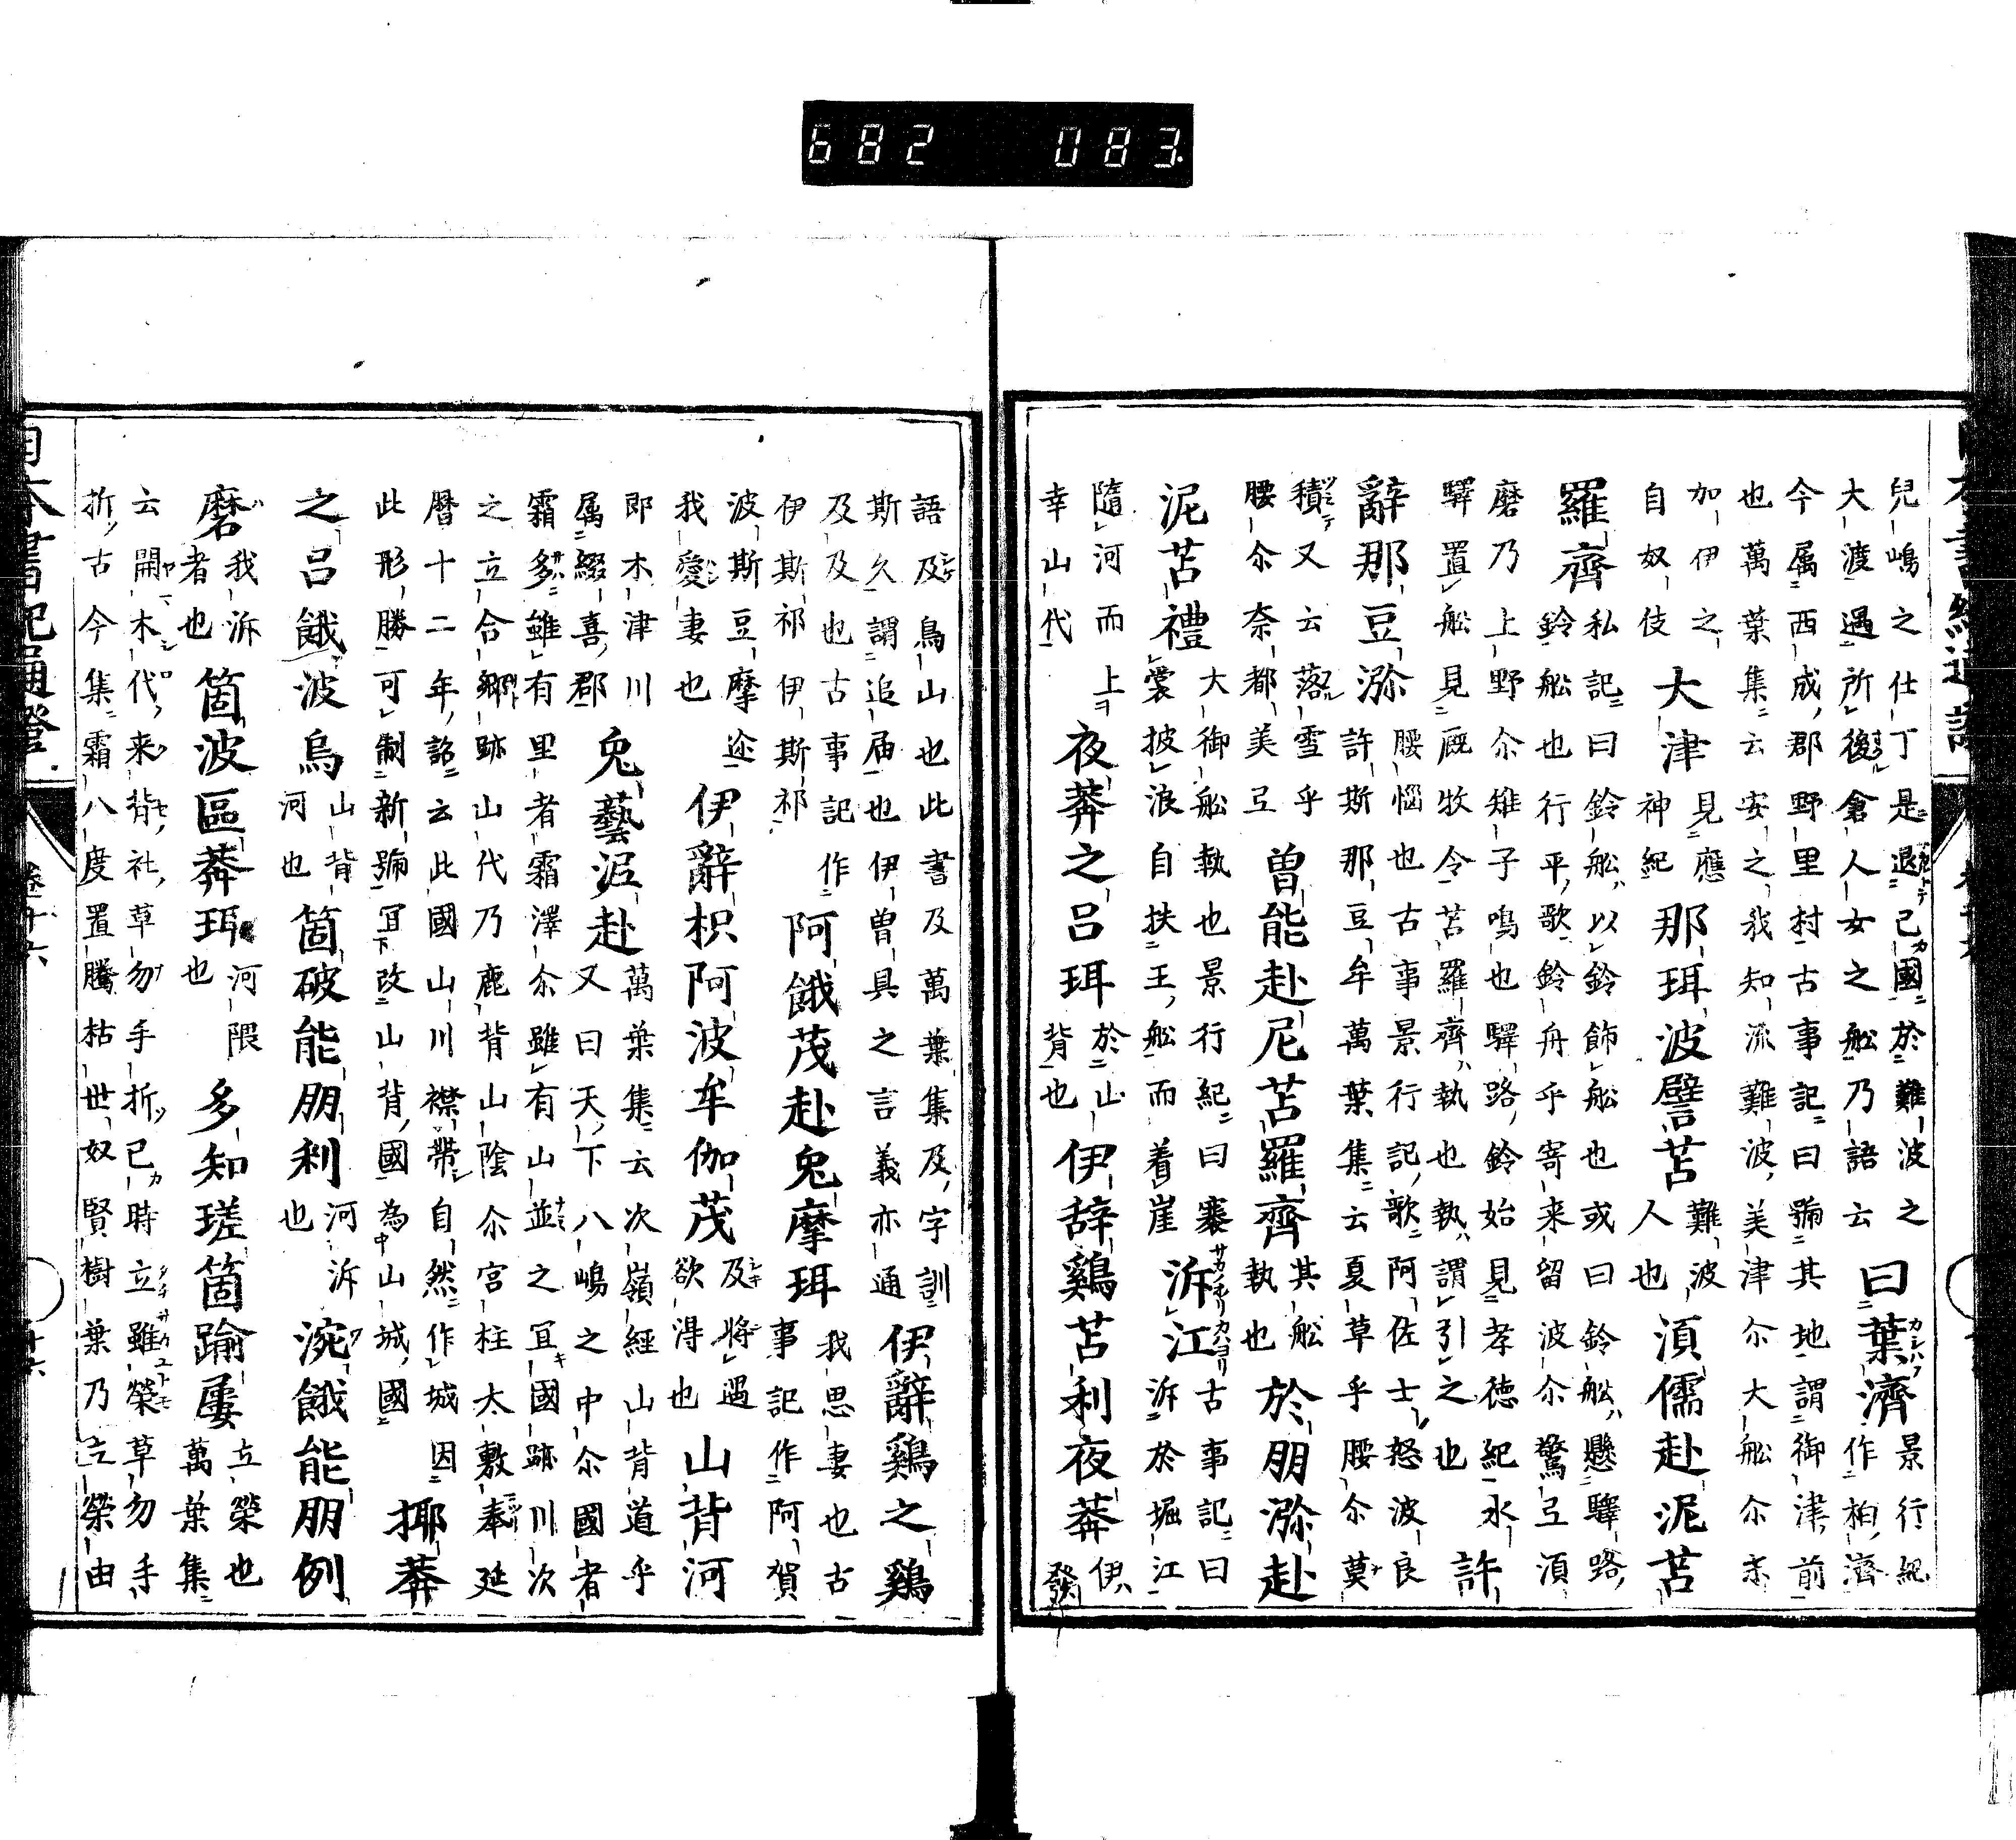 兒嶋之仕丁是退己國於難波之
大渡過所後倉人女之舩乃語云
曰葉濟
景行紀
作柏濟
今属西成郡野里村古事記曰号其地謂御津前
也萬葉集云安之我知流難波美津尓大舩尓末
加伊之
自奴伎
大津
見應
神紀
那珥波譬苫
難波
人也
須儒赴泥苫
羅齊
私記曰鈴舩以鈴飾舩也或曰鈴舩懸驛路
鈴舩也行平歌鈴舟乎寄来留波尓驚弖須
磨乃上野尓雉子鳴也驛路鈴始見孝徳紀水
驛置舩見厩牧令苫羅齊執也執謂引之也
許
辭那豆泝
腰惱也古事景行記歌阿佐士怒波良
許斯那豆牟萬葉集云夏草乎腰尓莫
積又云落雪乎
腰尓奈都美弖
曽能赴尼苫羅齊
其舩
執也
於朋泝赴
泥苫禮
大御舩執也景行紀曰褰
裳披浪自扶王舩而着崖
泝江
古事記曰
泝於堀江
隨河而上
幸山代
夜莽之呂珥
於山
背也
伊辞鷄苫利夜莽
伊
發
語及鳥山也此書及萬葉集及字訓
斯久謂追届也伊曽具之言義亦通
伊辭鷄之鷄
及及也古事記作
伊斯祁伊斯祁
阿餓茂赴兔摩珥
我思妻也古
事記作阿賀
波斯豆摩迩
我愛妻也
伊辭枳阿波牟伽茂
及將遇
欲得也
山背河
即木津川
属綴喜郡
兔藝泥赴
萬葉集云次嶺經山背道乎
又曰天下八嶋之中尓國者
霜多雖有里者霜澤尓雖有山並之冝國跡川次
之立合郷跡山代乃鹿背山陰尓宮柱太敷奉延
暦十二年詔云此國山川襟帶自然作城因
此形勝可制新号冝改山背國為山城國
揶莽
之呂餓波烏
山背
河也
箇破能朋利
河泝
也
涴餓能朋例
磨
我泝
者也
箇波區莽珥
河隈
也
多知瑳箇踰屢
立榮也
萬葉集
云開木代来背社草勿手折己時立雖榮草勿手
折古今集霜八度置騰枯世奴賢樹葉乃立榮由
日本書紀通證
卷十六
682 083.